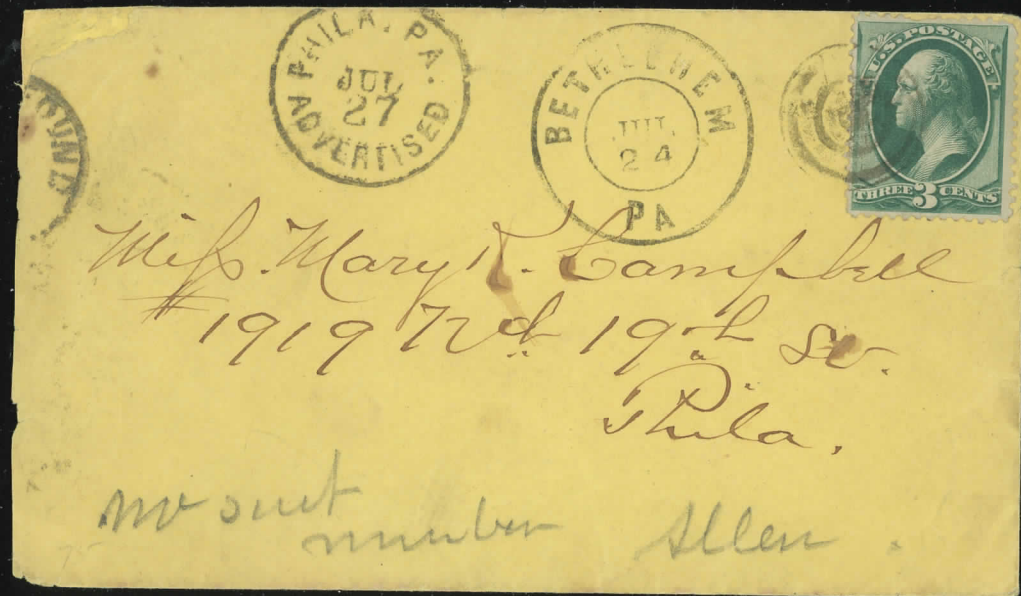 PHILA. PA.
JUL
27
ADVERTISED
BETHLEHEM
JUL
24
PA
U.S. POSTAGE
THREE 3 CENTS
Miss. Mary R. Campbell
# 1919 Nd. 19th St.
Phila.
no such
number Allen